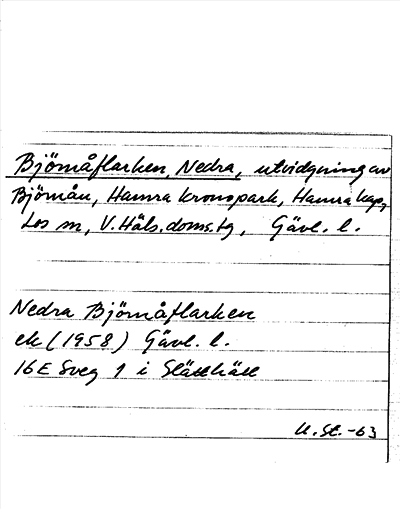 Björnåflarken, Nedra, utvidgning av
Björnån, Hamra kronopark, Hamra kap,
Los sn, V. Häls. doms. tg, Gävl. l.
Nedra Björnåflarken
ek (1958) Gävl. l.
16E Sveg 1 i
U. St. -63